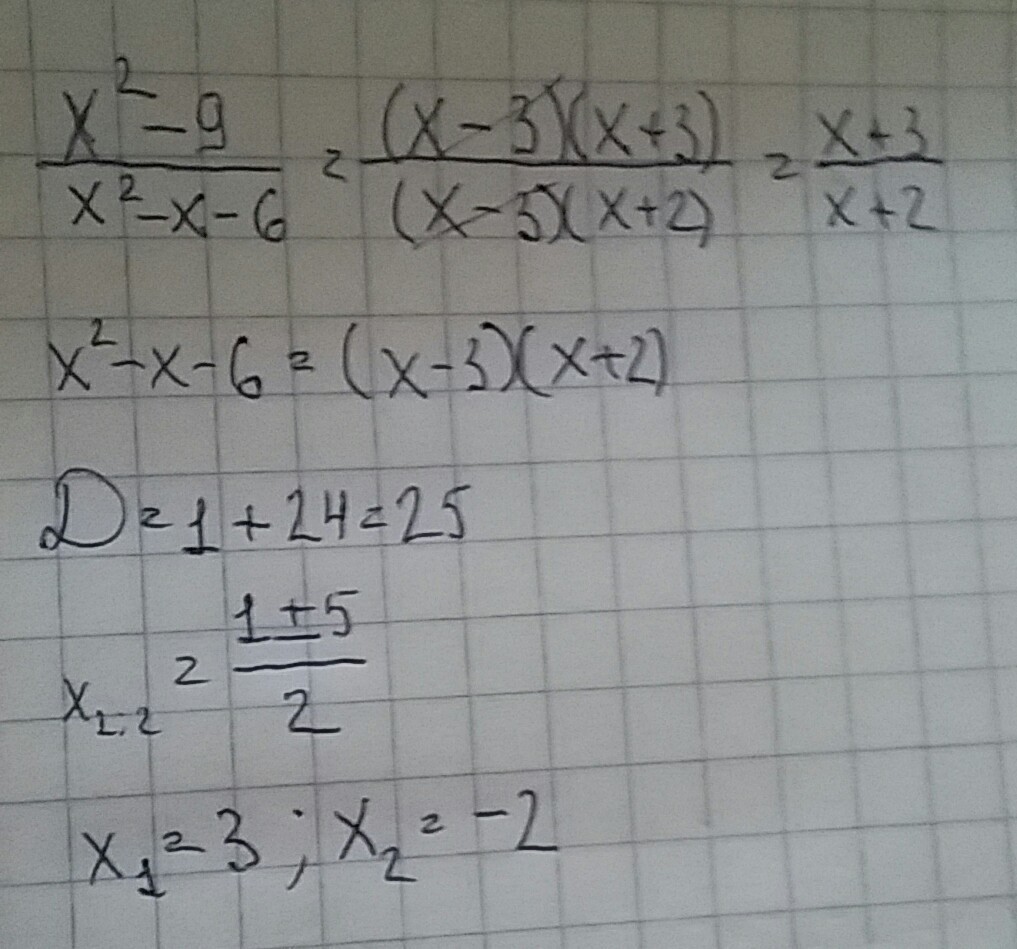 x² - 9 / x² - x - 6 = (x - 3)(x + 3) / (x - 3)(x + 2) = x + 3 / x + 2
x² - x - 6 = (x - 3)(x + 2)
D = 1 + 24 = 25
x₁,₂ = 1 ± 5 / 2
x₁ = 3 ; x₂ = -2